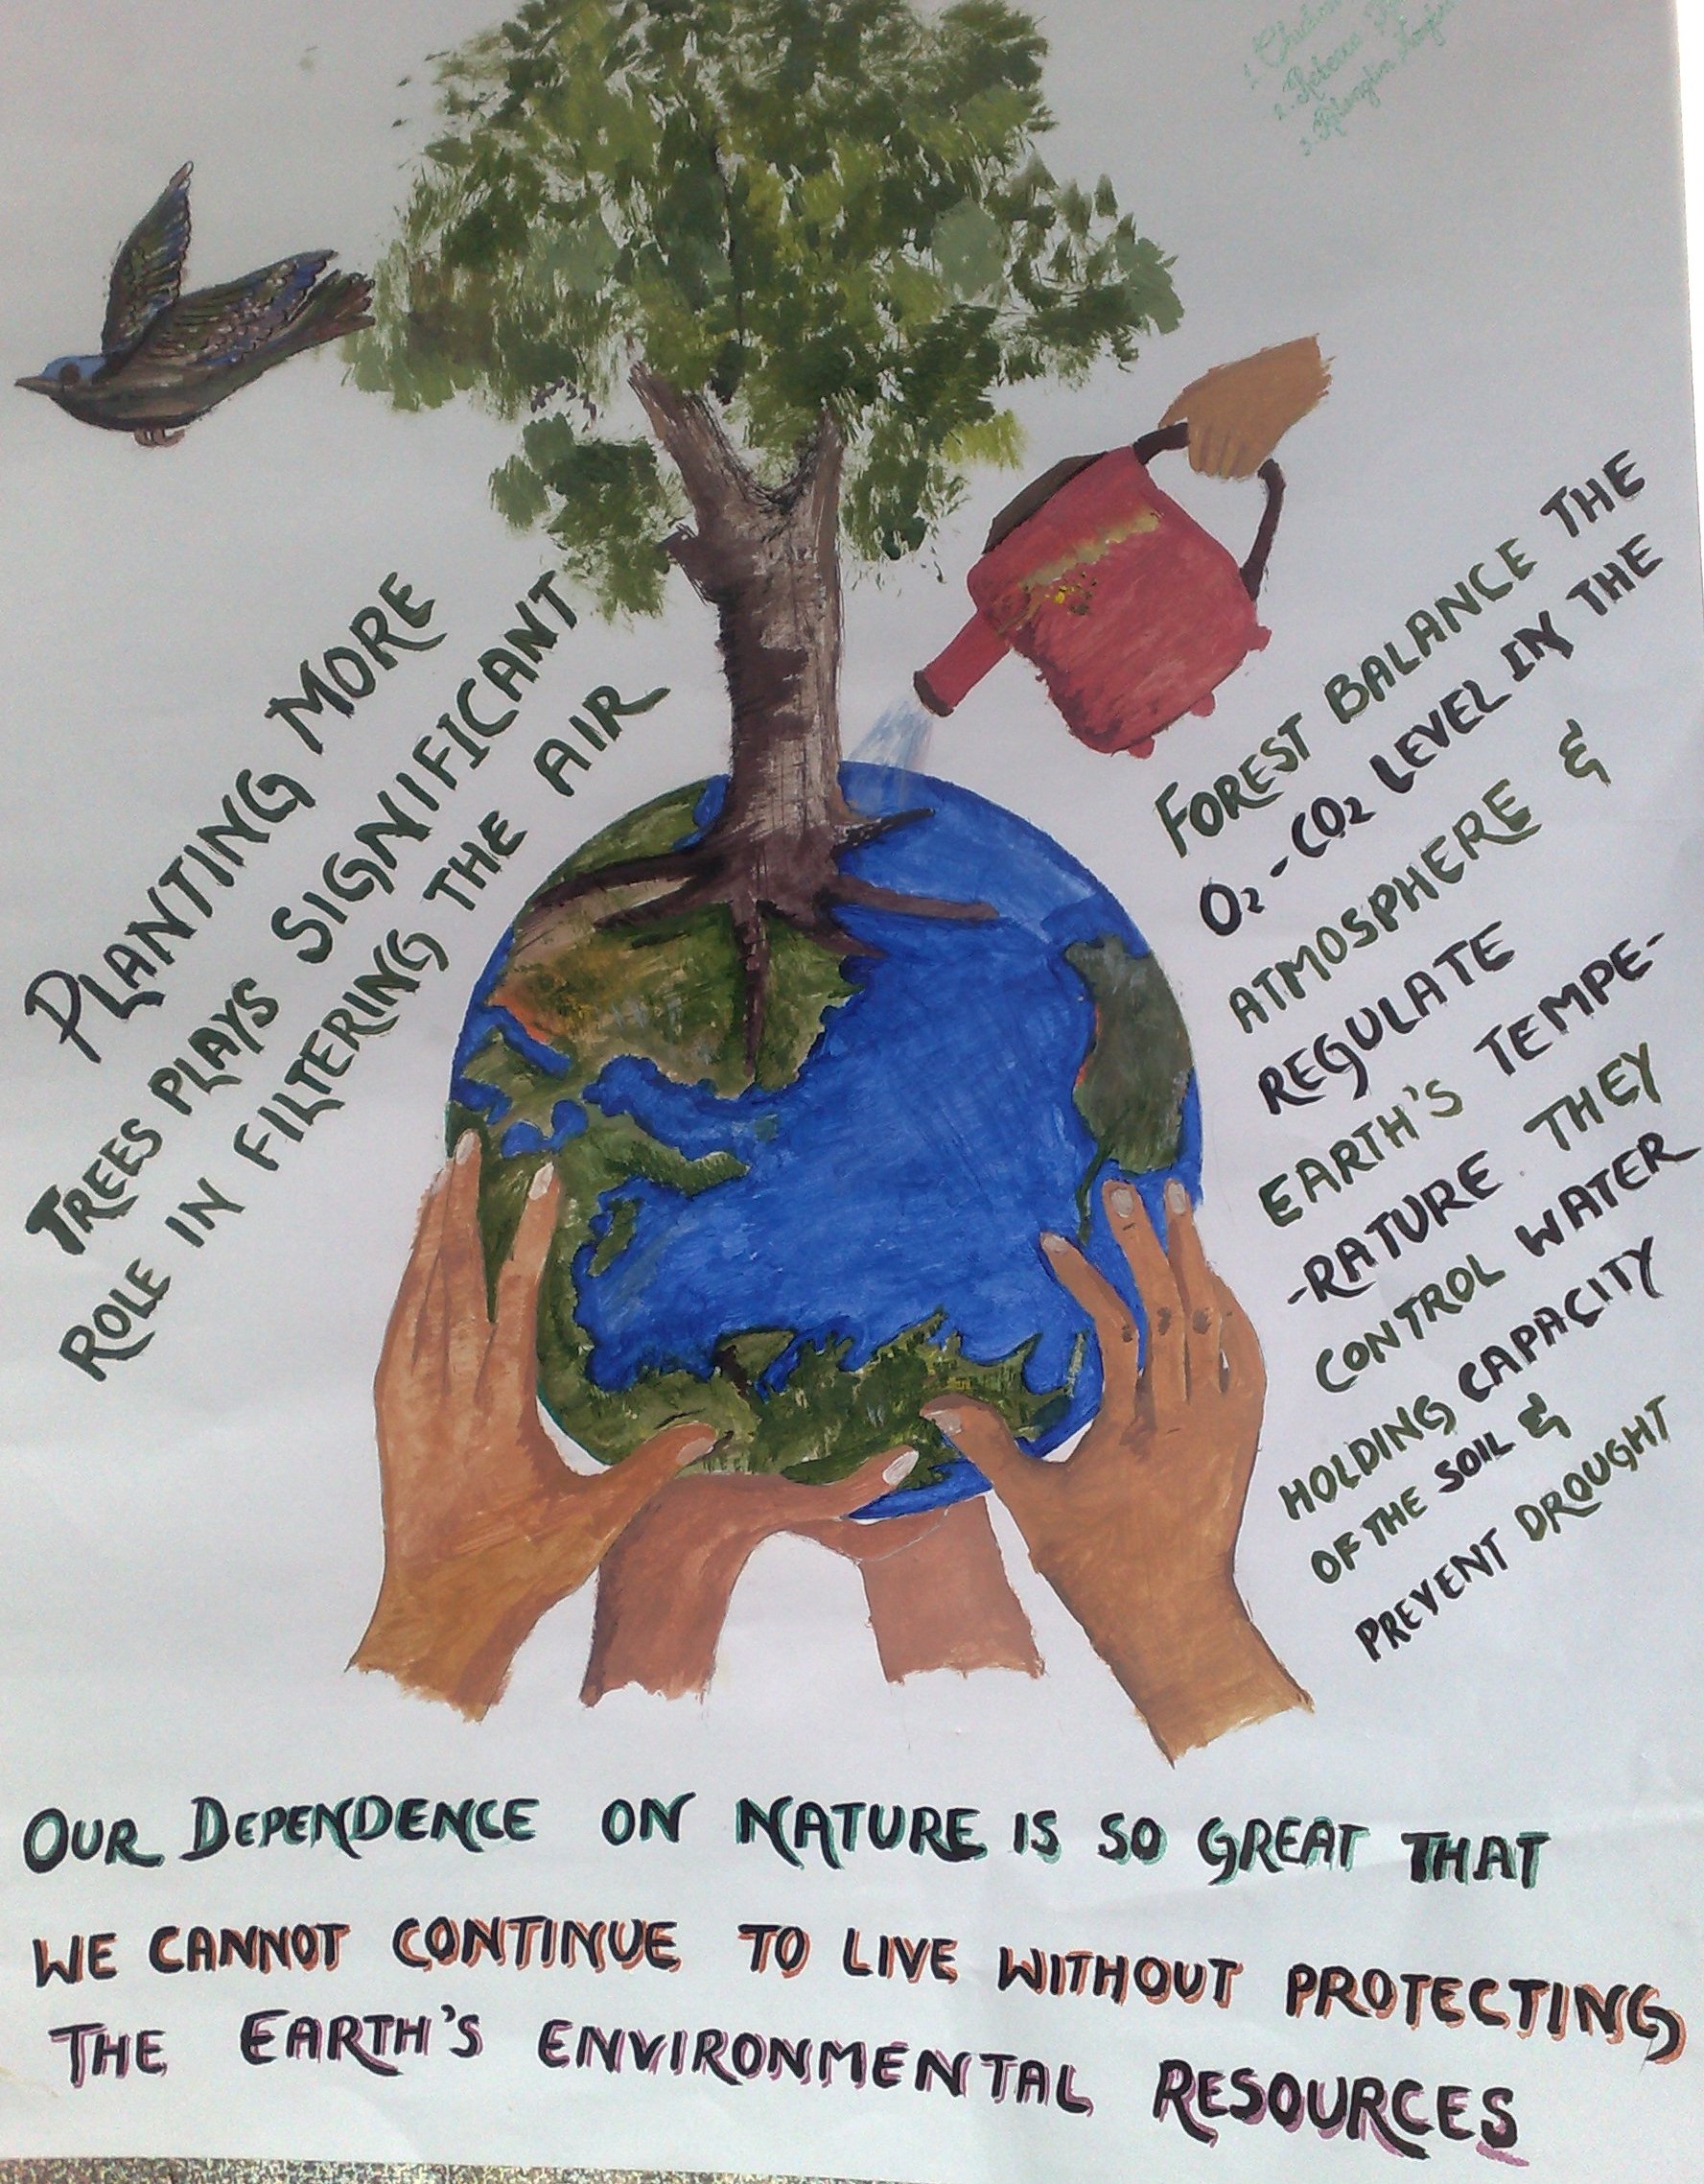 PLANTING MORE
TREES PLAYS SIGNIFICANT
ROLE IN FILTERING THE AIR
FOREST BALANCE THE
O₂-CO₂ LEVEL IN THE
ATMOSPHERE &
REGULATE
EARTH'S TEMPE-
-RATURE. THEY
CONTROL WATER
HOLDING CAPACITY
OF THE SOIL &
PREVENT DROUGHT
OUR DEPENDENCE ON NATURE IS SO GREAT THAT
WE CANNOT CONTINUE TO LIVE WITHOUT PROTECTING
THE EARTH'S ENVIRONMENTAL RESOURCES